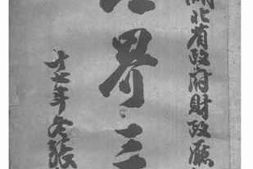 湖北省政府財政廳
界三
十七年冬張